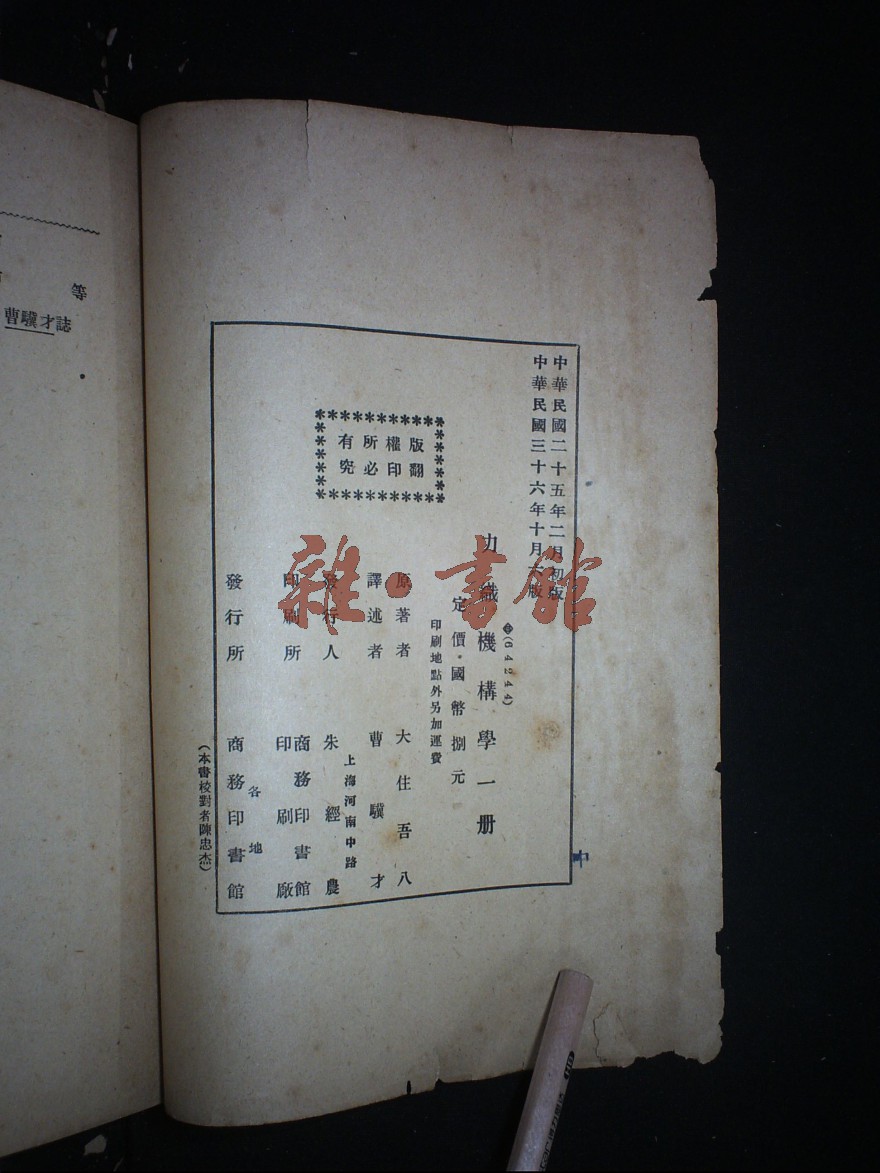 中華民國二十五年二月初版
中華民國三十六年十月版
(64244)
力織機構學一册
定價·國幣捌元
印刷地點外另加運費
版權所有
翻印必究
原著者 大住吾八
譯述者 曹驥才
上海河南中路
發行人 朱經農
印刷所 商務印書館
印刷廠
各地
發行所 商務印書館
(本書校對者陳忠杰)
中
雜·書館
等
曹驥才誌